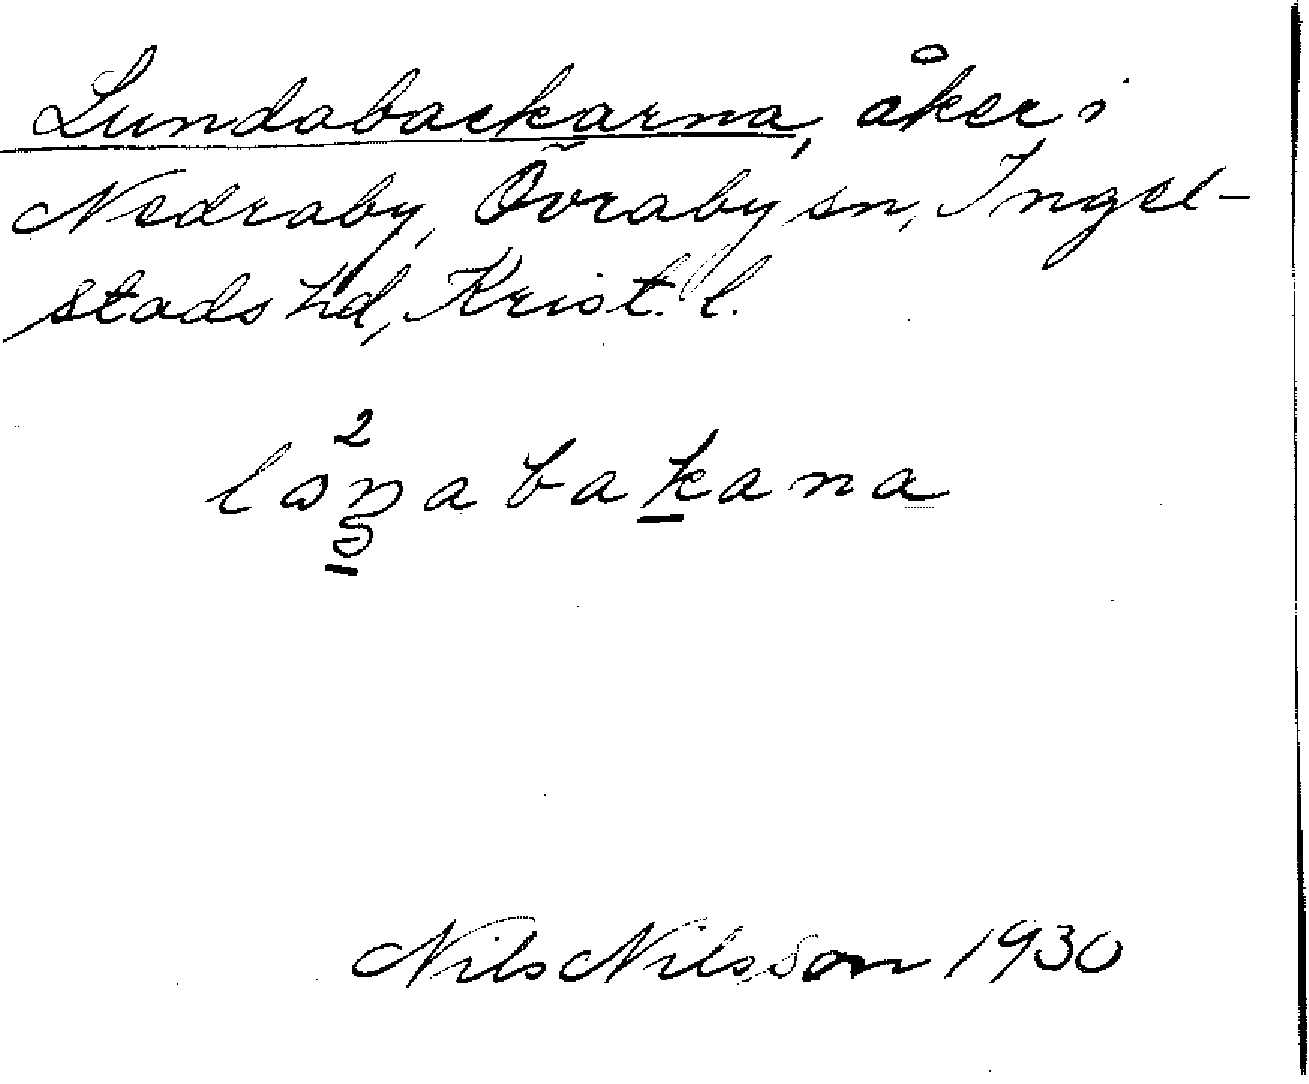 Lundabackarna, åker i
Nedraby, Övraby sn, Ingel-
stads hd, Krist. l.
2
Nils Nilsson 1930